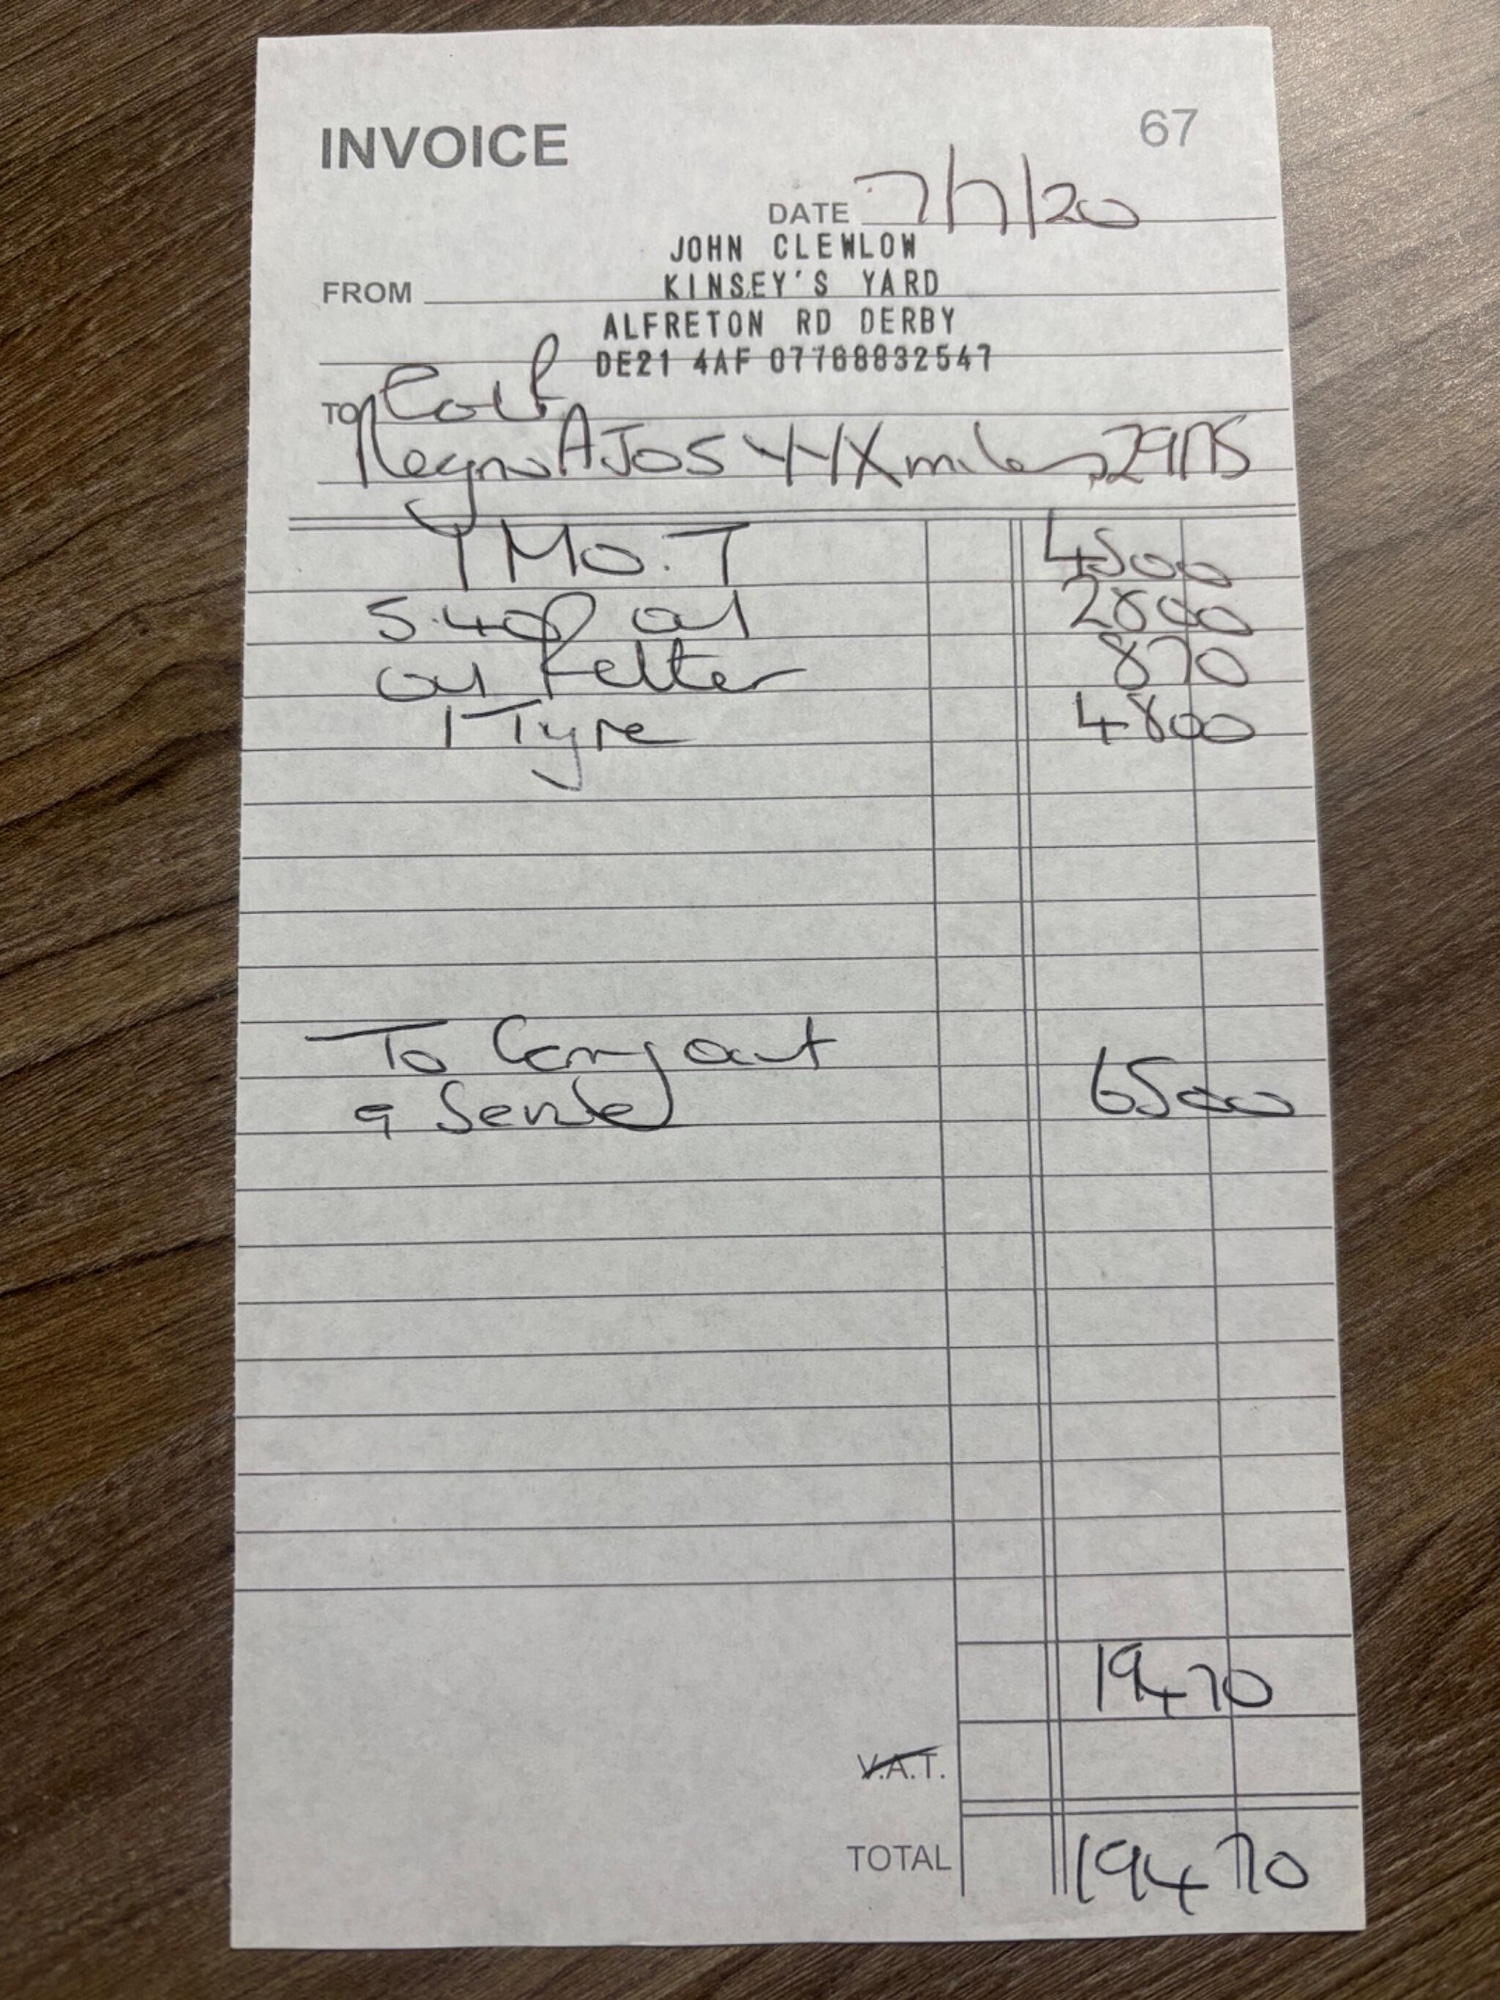 INVOICE 67
DATE 7/7/20
JOHN CLEWLOW
FROM KINSEY'S YARD
ALFRETON RD DERBY
DE21 4AF 07768832547
TO Colt
Regno AJ05 miles
1 M.O.T 4500
oil 2800
oil felter 870
1 Tyre 4800
To Carry out
a Service 6500
19470
V.A.T.
TOTAL 19470